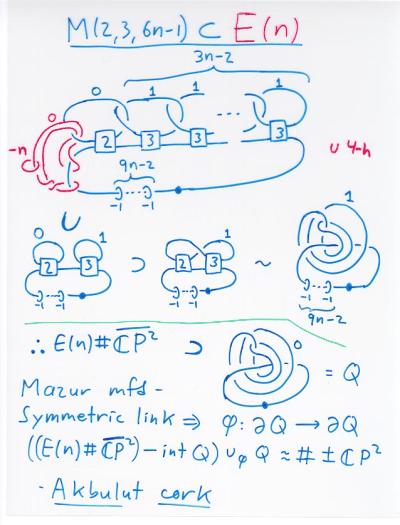 M(2,3,6n-1) ⊂ E(n)
3n-2
0 1 1 ... 1
0
-n
2 3 3 ... 3
∪ 4-h
9n-2
-1 ... -1
∪
0 1 1
2 3 ⊃ 2 3 ~
-1 -1 -1 -1 -1 -1
9n-2
∴ E(n)#\overline{ℂP²} ⊃ 0 = Q
Mazur mfd-
Symmetric link ⇒ φ: ∂Q → ∂Q
((E(n)#\overline{ℂP²})-int Q) ∪φ Q ≈ # ± ℂP²
- Akbulut cork